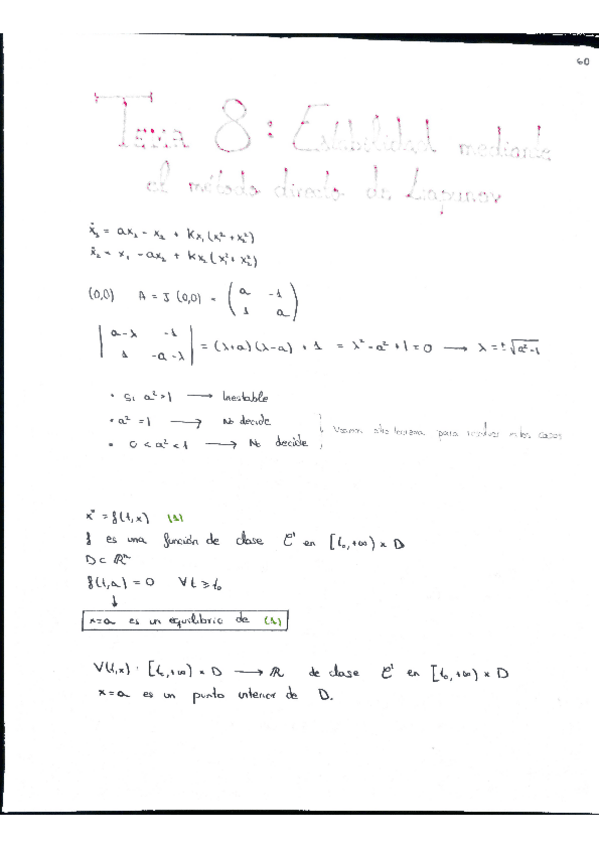 60
Tema 8: Estabilidad mediante
el método directo de Liapunov
ẋ₁ = ax₁ - x₂ + Kx₁(x₁² + x₂²)
ẋ₂ = x₁ - ax₂ + Kx₂(x₁² + x₂²)
(0,0) A = J(0,0) = ( a -1
1 a )
| a-λ -1
1 -a-λ | = (λ+a)(λ-a) + 1 = λ² - a² + 1 = 0 → λ = ±√a²-1
• Si a² > 1 → Inestable
• a² = 1 → No decide
• 0 < a² < 1 → No decide
para resolver estos casos
x' = f(t,x) (1)
f es una función de clase C¹ en [t₀,+∞) x D
D ⊂ ℝⁿ
f(t,a) = 0 ∀t ≥ t₀
↓
x=a es un equilibrio de (1)
V(t,x): [t₀,+∞) x D → ℝ de clase C¹ en [t₀,+∞) x D
x=a es un punto interior de D.